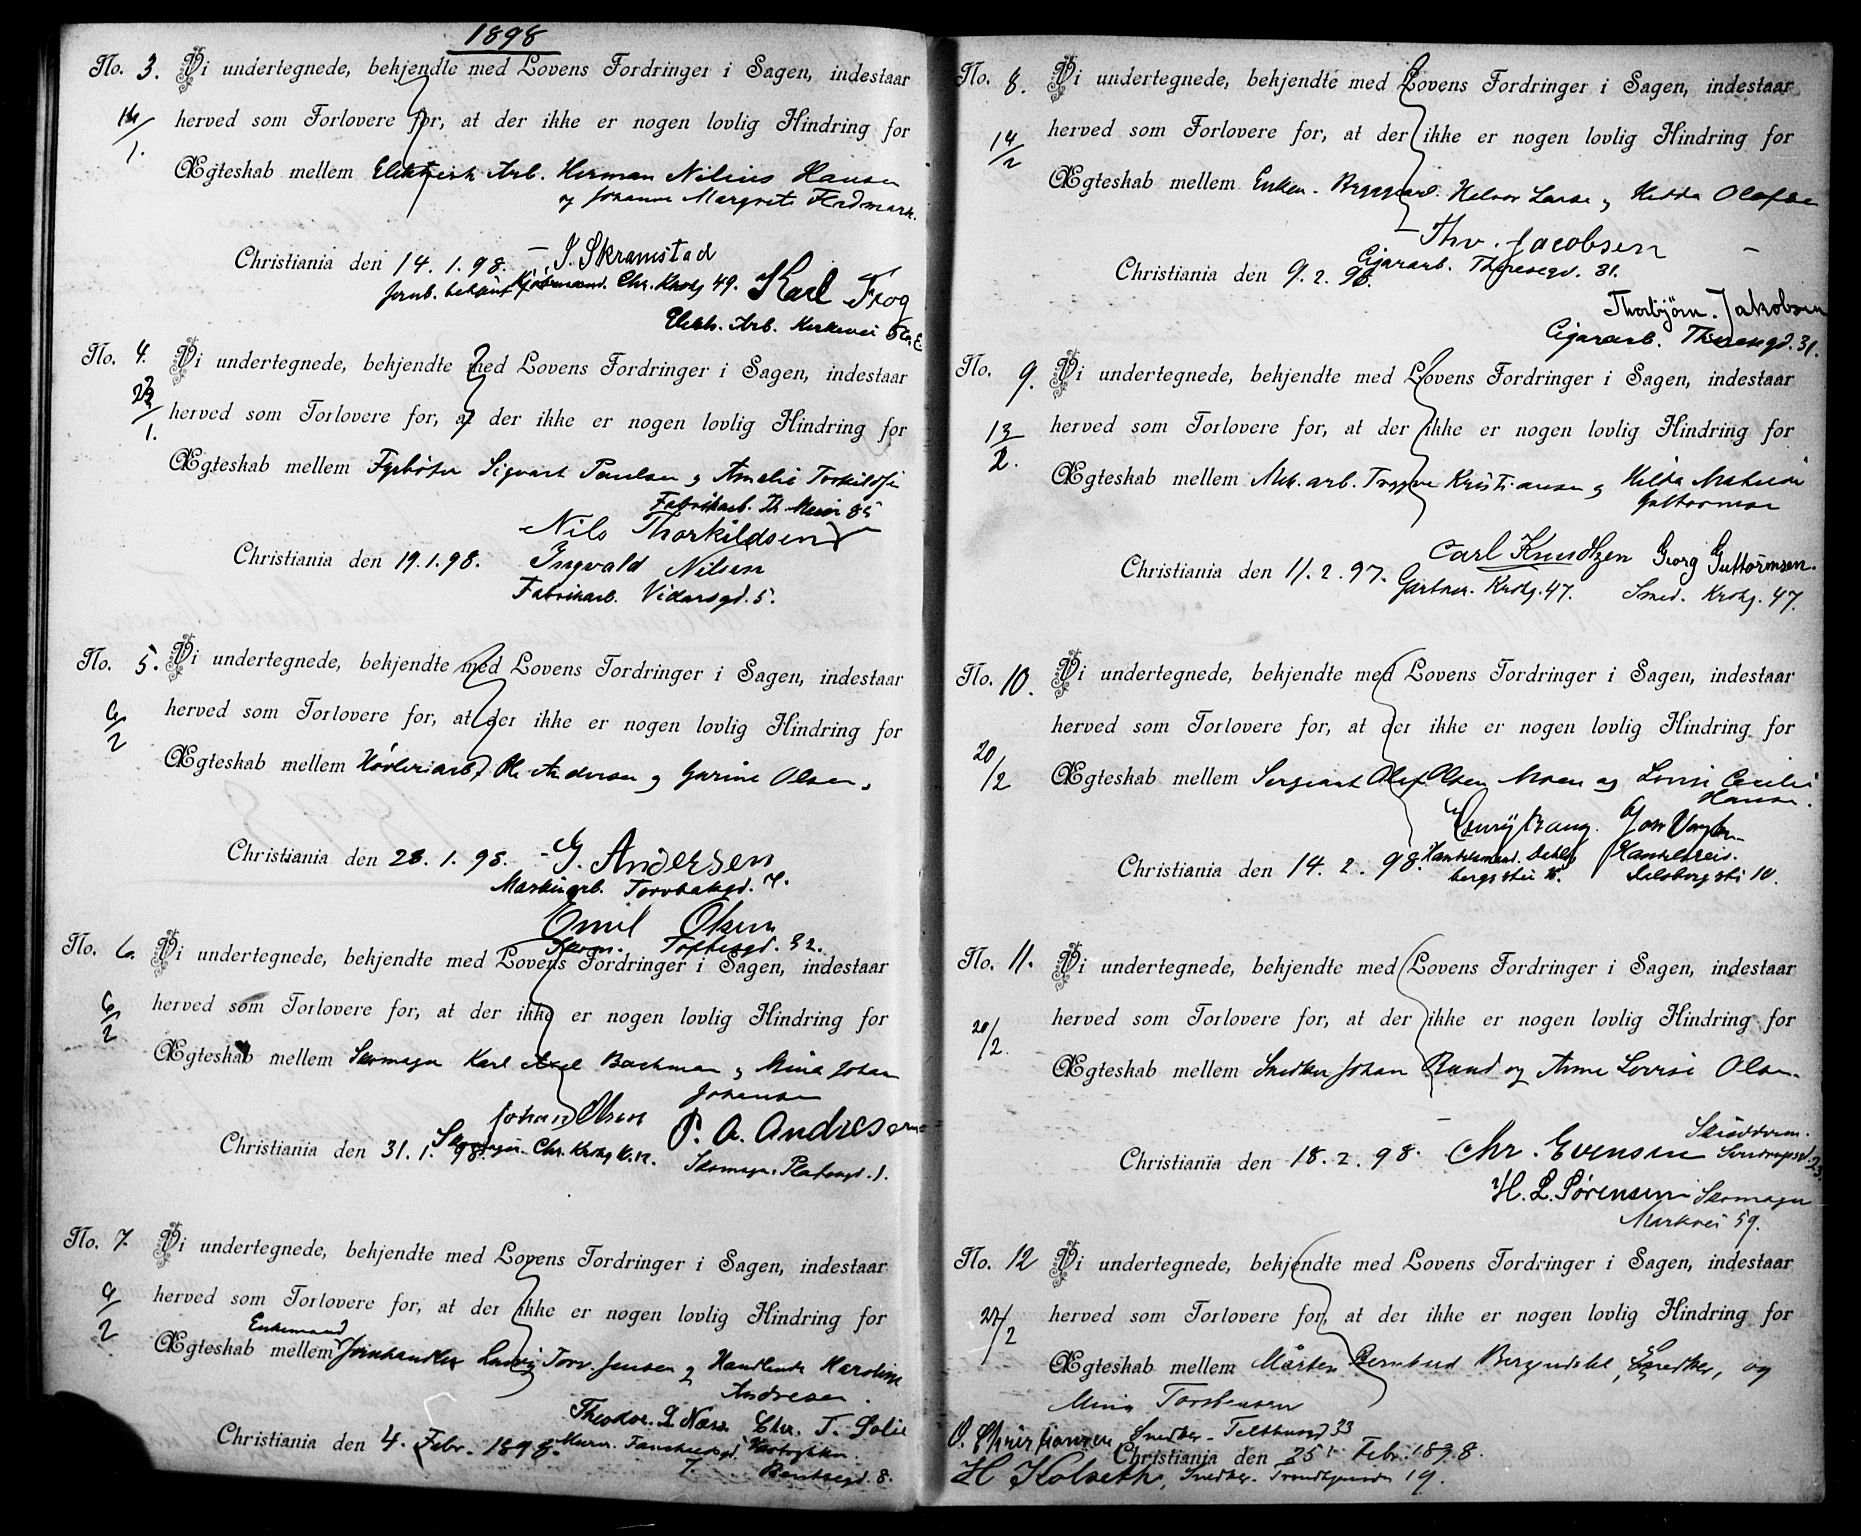 1898
No. 3. Vi undertegnede, bekjendte med Lovens Fordringer i Sagen, indestaar
16/1. herved som Forlovere for, at der ikke er nogen lovlig Hindring for
Ægteskab mellem Elektrisk Arb. Herman Nilius Hansen
og Johanne Margrete Hedmark.
Christiania den 14.1.98. J. Skramstad
Jernb. betjent Chr. Krohg 49. Karl Frog
Elekt. Arb. Kirkevei
No. 4. Vi undertegnede, bekjendte med Lovens Fordringer i Sagen, indestaar
23/1. herved som Forlovere for, at der ikke er nogen lovlig Hindring for
Ægteskab mellem Fyrbøter Sigvart Paulsen og Amelie Torkildse
Fabrikarb. Th. Meier 85
Nils Thorkildsen
Christiania den 19.1.98. Ingvald Nilsen
Fabrikarb. Vidarsgd. 5.
No. 5. Vi undertegnede, bekjendte med Lovens Fordringer i Sagen, indestaar
6/2 herved som Forlovere for, at der ikke er nogen lovlig Hindring for
Ægteskab mellem Høvleriarb. Ole Andersen og Gurine Olsen.
Christiania den 28.1.98. G. Andersen
Maskinarb. Torvbakgd. 7.
Emil Olsen
Skom. Toftesgd. 32.
No. 6. Vi undertegnede, bekjendte med Lovens Fordringer i Sagen, indestaar
6/2 herved som Forlovere for, at der ikke er nogen lovlig Hindring for
Ægteskab mellem Skomager Karl Axel Bachman og Mina Johan
Johansen
Johan Olsen P. A. Andresen
Christiania den 31.1.98. Skomager. Chr. Krohg
Skomager. Platousgd. 1.
No. 7. Vi undertegnede, bekjendte med Lovens Fordringer i Sagen, indestaar
9/2 herved som Forlovere for, at der ikke er nogen lovlig Hindring for
Enkemand
Ægteskab mellem Jernhandler Ludvig Torv. Jensen og Handlende Karoline
Andresen.
Theodor. L. Næss Chr. T. Solie
Christiania den 4. Febr. 1898. Murer.
7. Bentsegd. 8.
No. 8. Vi undertegnede, bekjendte med Lovens Fordringer i Sagen, indestaar
14/2 herved som Forlovere for, at der ikke er nogen lovlig Hindring for
Ægteskab mellem Enkem. Halvor Larse og Hedda Olafse
Thv. Jacobsen
Christiania den 9.2.98. Cigararb. Theresegd. 31.
Thorbjørn. Jakobsen
Cigararb. Theresegd. 31.
No. 9. Vi undertegnede, bekjendte med Lovens Fordringer i Sagen, indestaar
13/2. herved som Forlovere for, at der ikke er nogen lovlig Hindring for
Ægteskab mellem Mek. arb. Trygve Kristiansen og Hilda Mathilde
Guttormse
Carl Knudtzen Georg Guttormsen.
Christiania den 11.2.97. Gartner. Krohg. 47. Smed. Krohg. 47.
No. 10. Vi undertegnede, bekjendte med Lovens Fordringer i Sagen, indestaar
20/2 herved som Forlovere for, at der ikke er nogen lovlig Hindring for
Ægteskab mellem Sergeant Olaf Olsen Moen og Lovise Cecilie
Hansen.
Christiania den 14.2.98. Handelsmand. Dæhls Handelsreis.
bergsstei 10. Delsbergsti 10.
No. 11. Vi undertegnede, bekjendte med Lovens Fordringer i Sagen, indestaar
20/2. herved som Forlovere for, at der ikke er nogen lovlig Hindring for
Ægteskab mellem Snedker Johan Rund og Anne Lovise Olsen.
Skrædderm.
Christiania den 18.2.98. Chr. Evensen Sverdrupsgd. 23.
H. L. Sørensen Skomager
Markvei 59.
No. 12 Vi undertegnede, bekjendte med Lovens Fordringer i Sagen, indestaar
27/2 herved som Forlovere for, at der ikke er nogen lovlig Hindring for
Ægteskab mellem Mårten Bernhard Bergendahl, Snedker, og
Mina Torstensen
O. Christiansen Snedker - Telthusgd 33
Christiania den 25 Febr. 1898.
H Kolseth, Snedker. Trondhjemsvei 19.